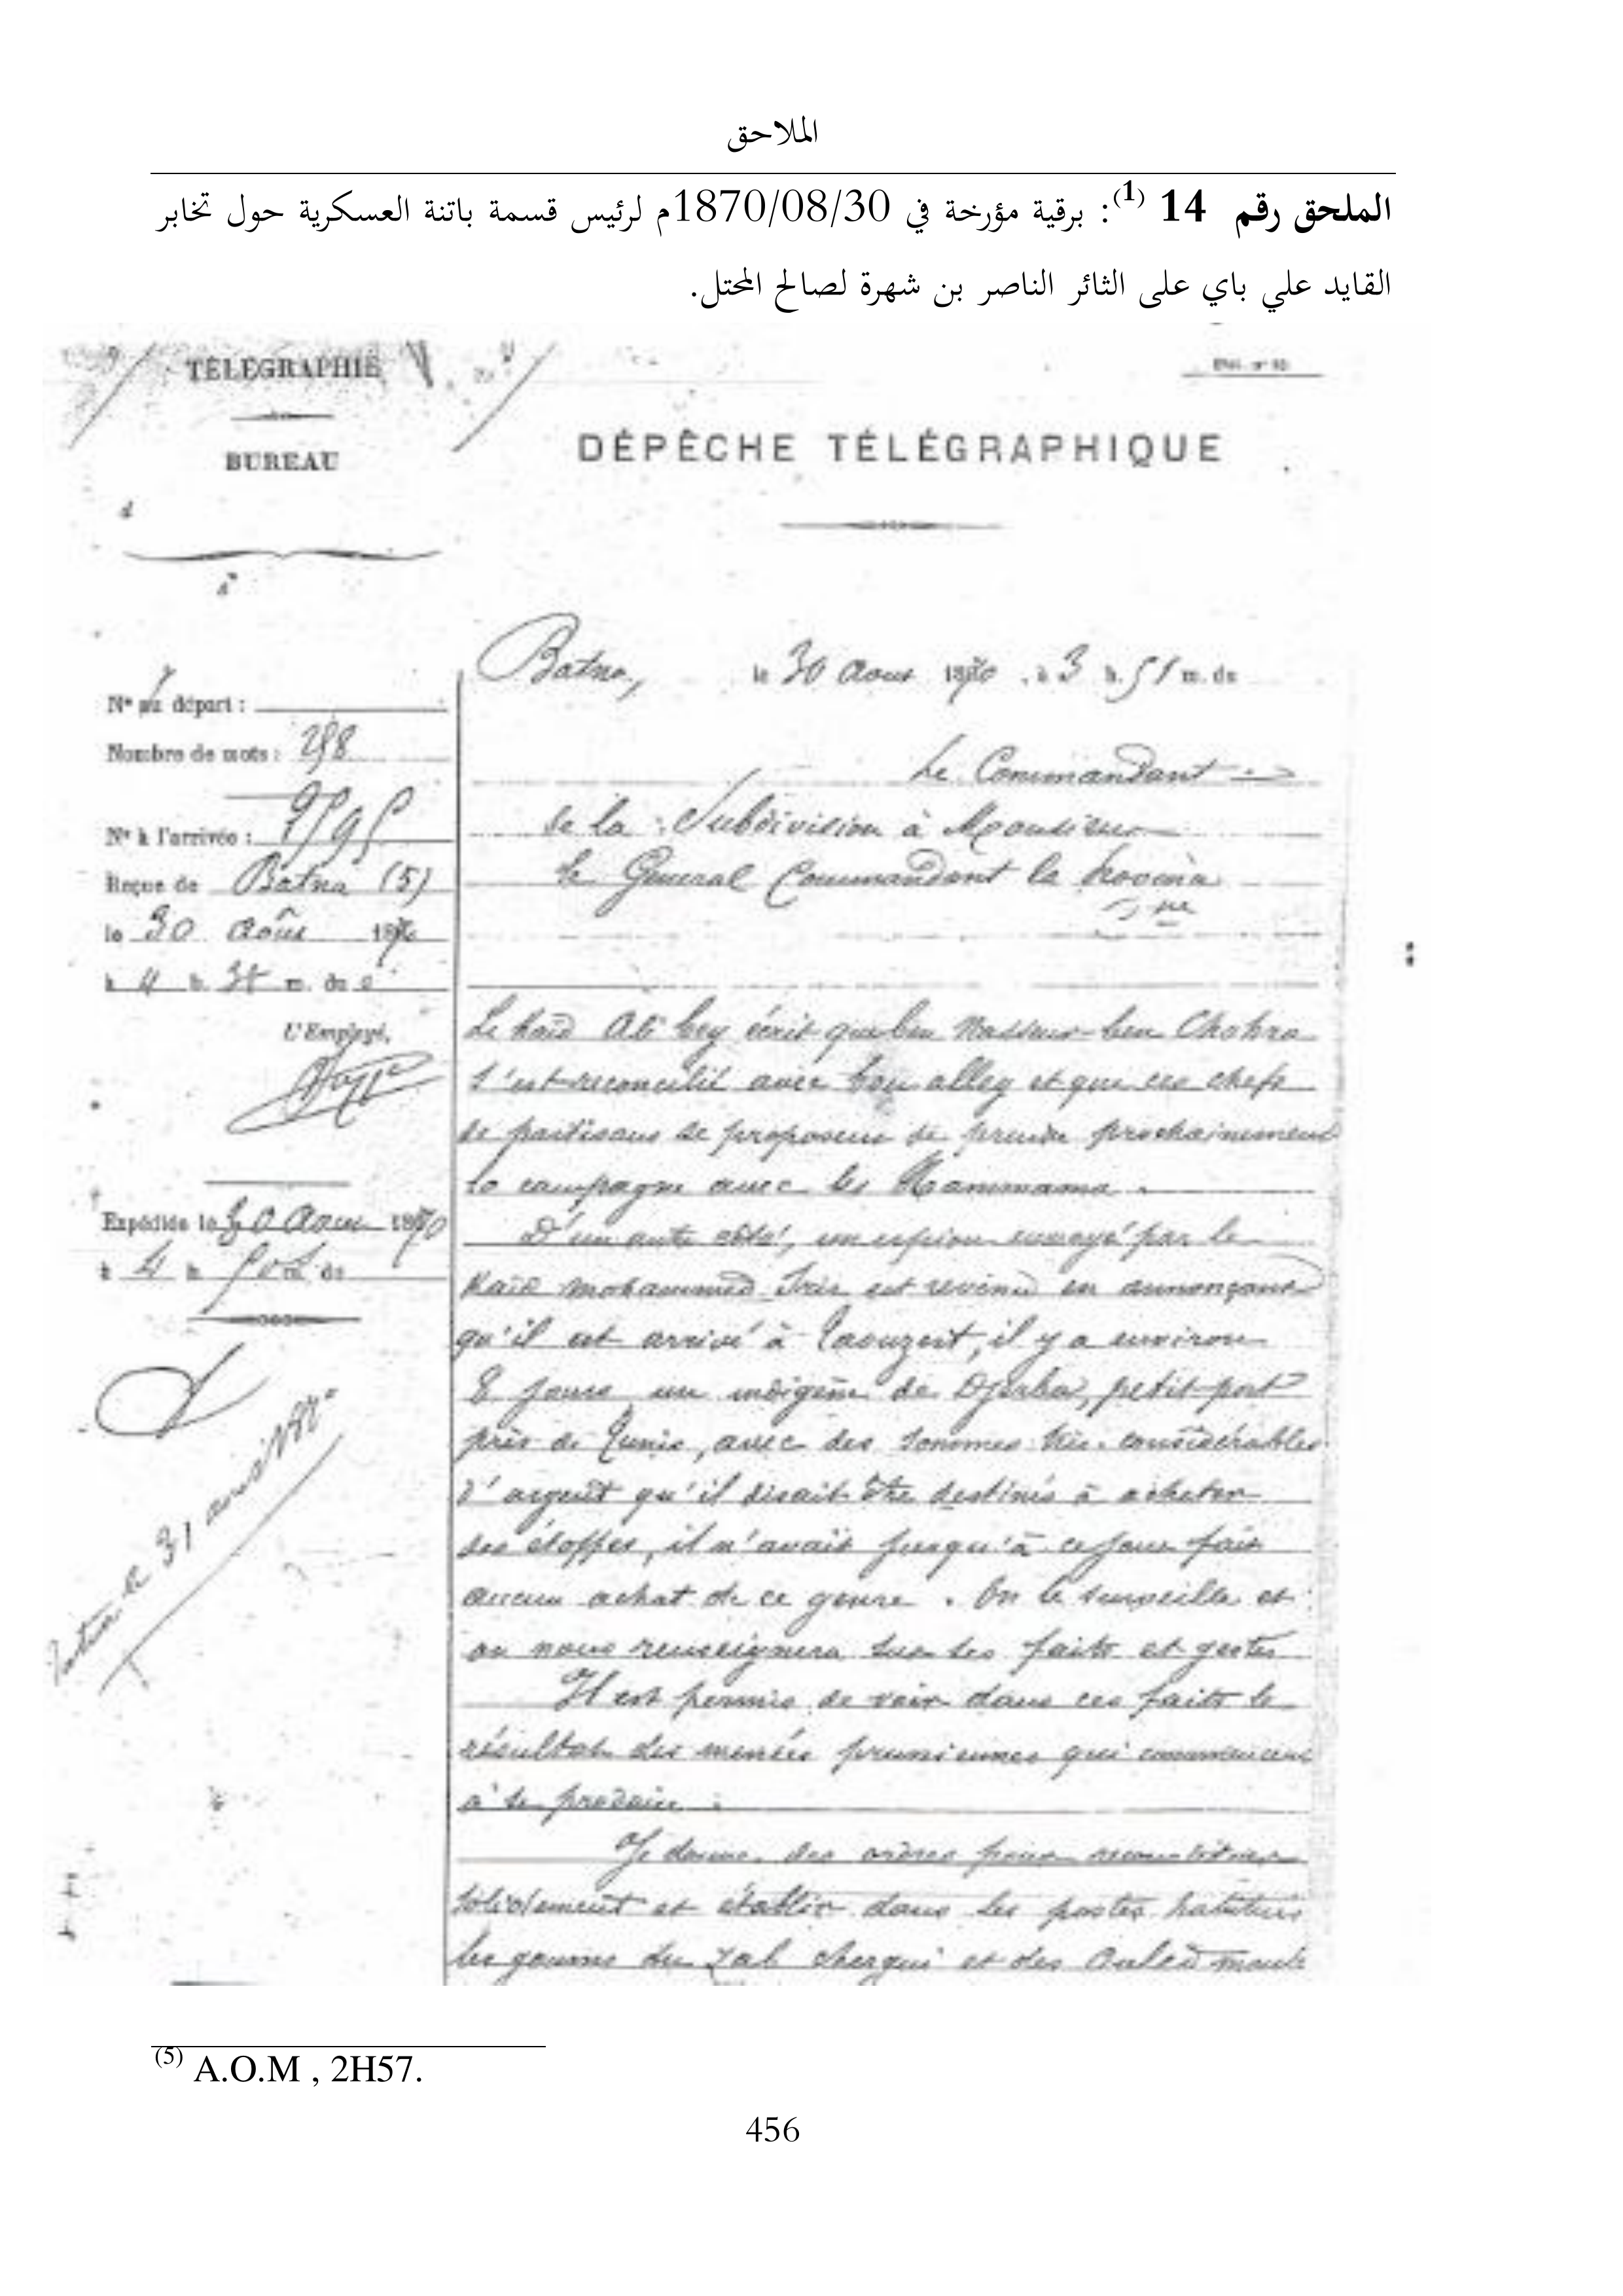 الملاحق
الملحق رقم 14 (1): برقية مؤرخة في 1870/08/30م لرئيس قسمة باتنة العسكرية حول تخابر
القايد علي باي على الثائر الناصر بن شهرة لصالح المحتل.
TÉLÉGRAPHIE
BUREAU
DÉPÊCHE TÉLÉGRAPHIQUE
Batna, le 30 Aout 1870, à 3 h. 51 m. du
N° au départ :
Nombre de mots : 298
N° à l'arrivée :
Reçue de Batna (5)
le 30 Août 1870
à 4 h. m. du s
L'Employé,
Expédiée le 30 Aout 1870
à 4 h m. de
le 31
Le Commandant
de la Subdivision à Monsieur
le Général Commandant la Province
Le Kaïd Ali bey écrit que ben Nasseur-ben Chohra
s'est reconcilié avec bou alleg et que ces chefs
de partisans se proposent de prendre prochainement
la campagne avec les Hammama.
D'un autre côté, un espion envoyé par le
Kaïd Mohammed Dris est revenu en annonçant
qu'il est arrivé à Taouzert, il y a environ
8 jours un indigène de Djerba, petit port
près de Tunis, avec des sommes très considérables
d'argent qu'il disait être destinés à acheter
des étoffes, il n'avait jusqu'à ce jour fait
aucun achat de ce genre. On le surveille et
on nous renseignera sur ses faits et gestes
Il est permis de voir dans ces faits le
résultat des menées prussiennes qui commencent
à se produire.
Je donne des ordres pour reconstituer
solidement et établir dans les postes habituels
les goums du Zab chergui et des Ouled
(5) A.O.M , 2H57.
456